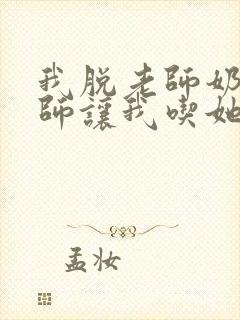 我脱老師奶
師讓我喫她
孟妝